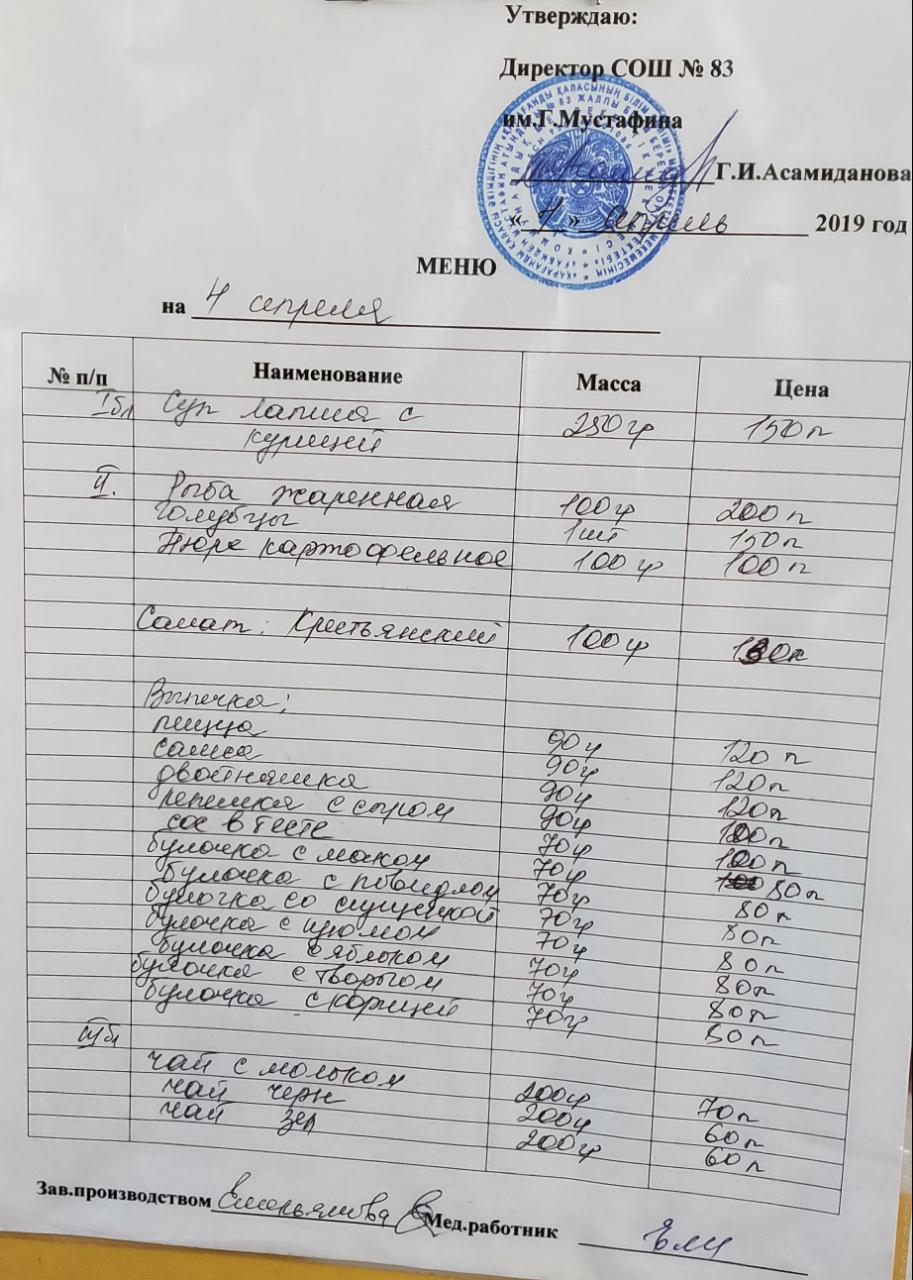 Утверждаю:
Директор СОШ № 83
им.Г.Мустафина
Г.И.Асамиданова
« 4 » апрель 2019 год
МЕНЮ
на 4 апреля
№ п/п Наименование Масса Цена
I бл Суп лапша с 250гр 150п
курицей
II. Рыба жаренная 100гр 200п
Голубцы 1шт 150п
Пюре картофельное 100гр 100п
Салат: Крестьянский 100гр 130п
Выпечка:
пицца 90гр 120п
самса 90гр 120п
двойняшка 90гр 120п
лепешка с сыром 90гр 100п
сос в тесте 70гр 100п
булочка с маком 70гр 80п
булочка с повидлом 70гр 80п
булочка со сгущенкой 70гр 80п
булочка с изюмом 70гр 80п
булочка с яблоком 70гр 80п
булочка с творогом 70гр 80п
булочка с корицей 70гр 80п
III бл
чай с молоком 200гр 70п
чай черн 200гр 60п
чай зел 200гр 60п
Зав.производством Емельянова Мед.работник